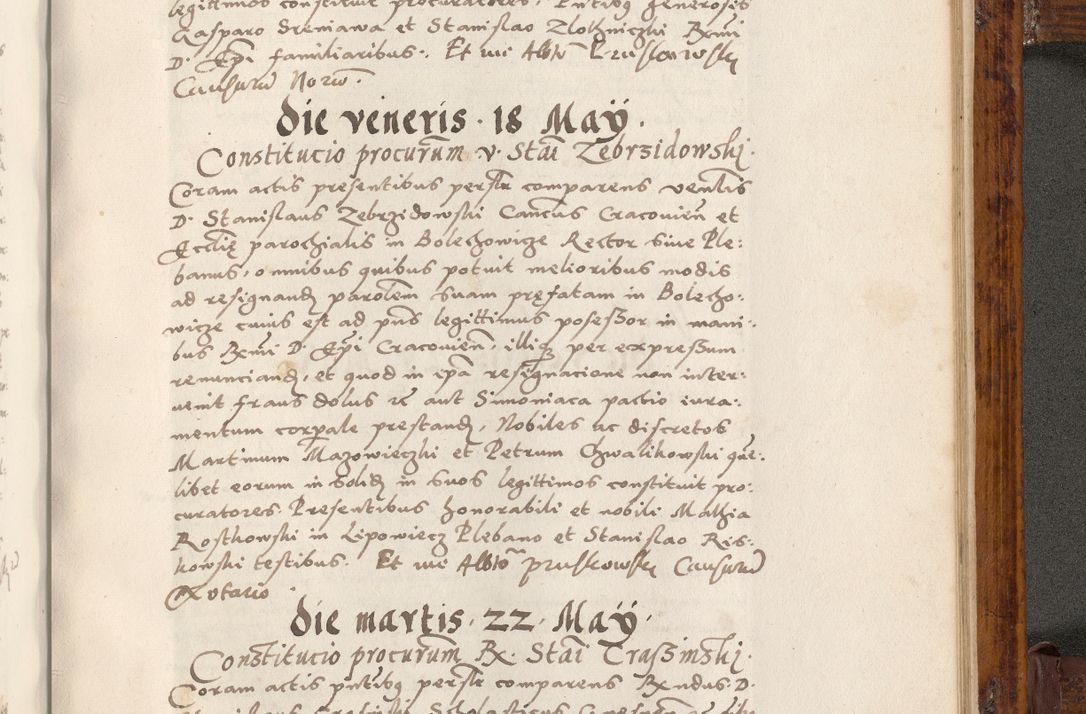 legittimos constituit procuratores, Pntibq generosis
Gasparo Sreniawa et Stanislao Zlothniczki Rxmi
D. Epi familiaribus. Et me Albto Pruskowsky
Causaru Norio.
die veneris. 18 May.
Constitucio procurum v. Stai Zebrzidowski.
Coram actis presentibus perslr comparens venlis
D. Stanislaus Zebrzidowski Cancus Cracouien et
Ecclię parochialis in Bolechowicze Rector siue Ple:
banus, omnibus quibus potuit melioribus modis
ad resignand parolem suam pręfatam in Bolecho:
wicze cuius est ad pns legittimus possessor in mani:
bus Rxmi D. Epi Cracouien, illiq per expressum
renunciand, et quod in epa resignacione non inter:
uenit fraus dolus rc aut Simoniaca pactio iura:
mentum corporale prestand, Nobiles ac discretos
Martinum Mazowieczki et Petrum Chwalikowski que:
libet eorum in solid in suos legittimos constituit pro:
curatores. Presentibus honorabili et nobili Mathia
Rostkowski in Lipowiecz Plebano et Stanislao Ris:
kowski testibus. Et me Albto pruskowsky Causaru
Notario
die martis. 22. May.
Constitucio procurum R. Stai Craszinski.
Coram actis pntibq perslr comparens Rxndus D.
Stanislaus Crasinski Scholasticus